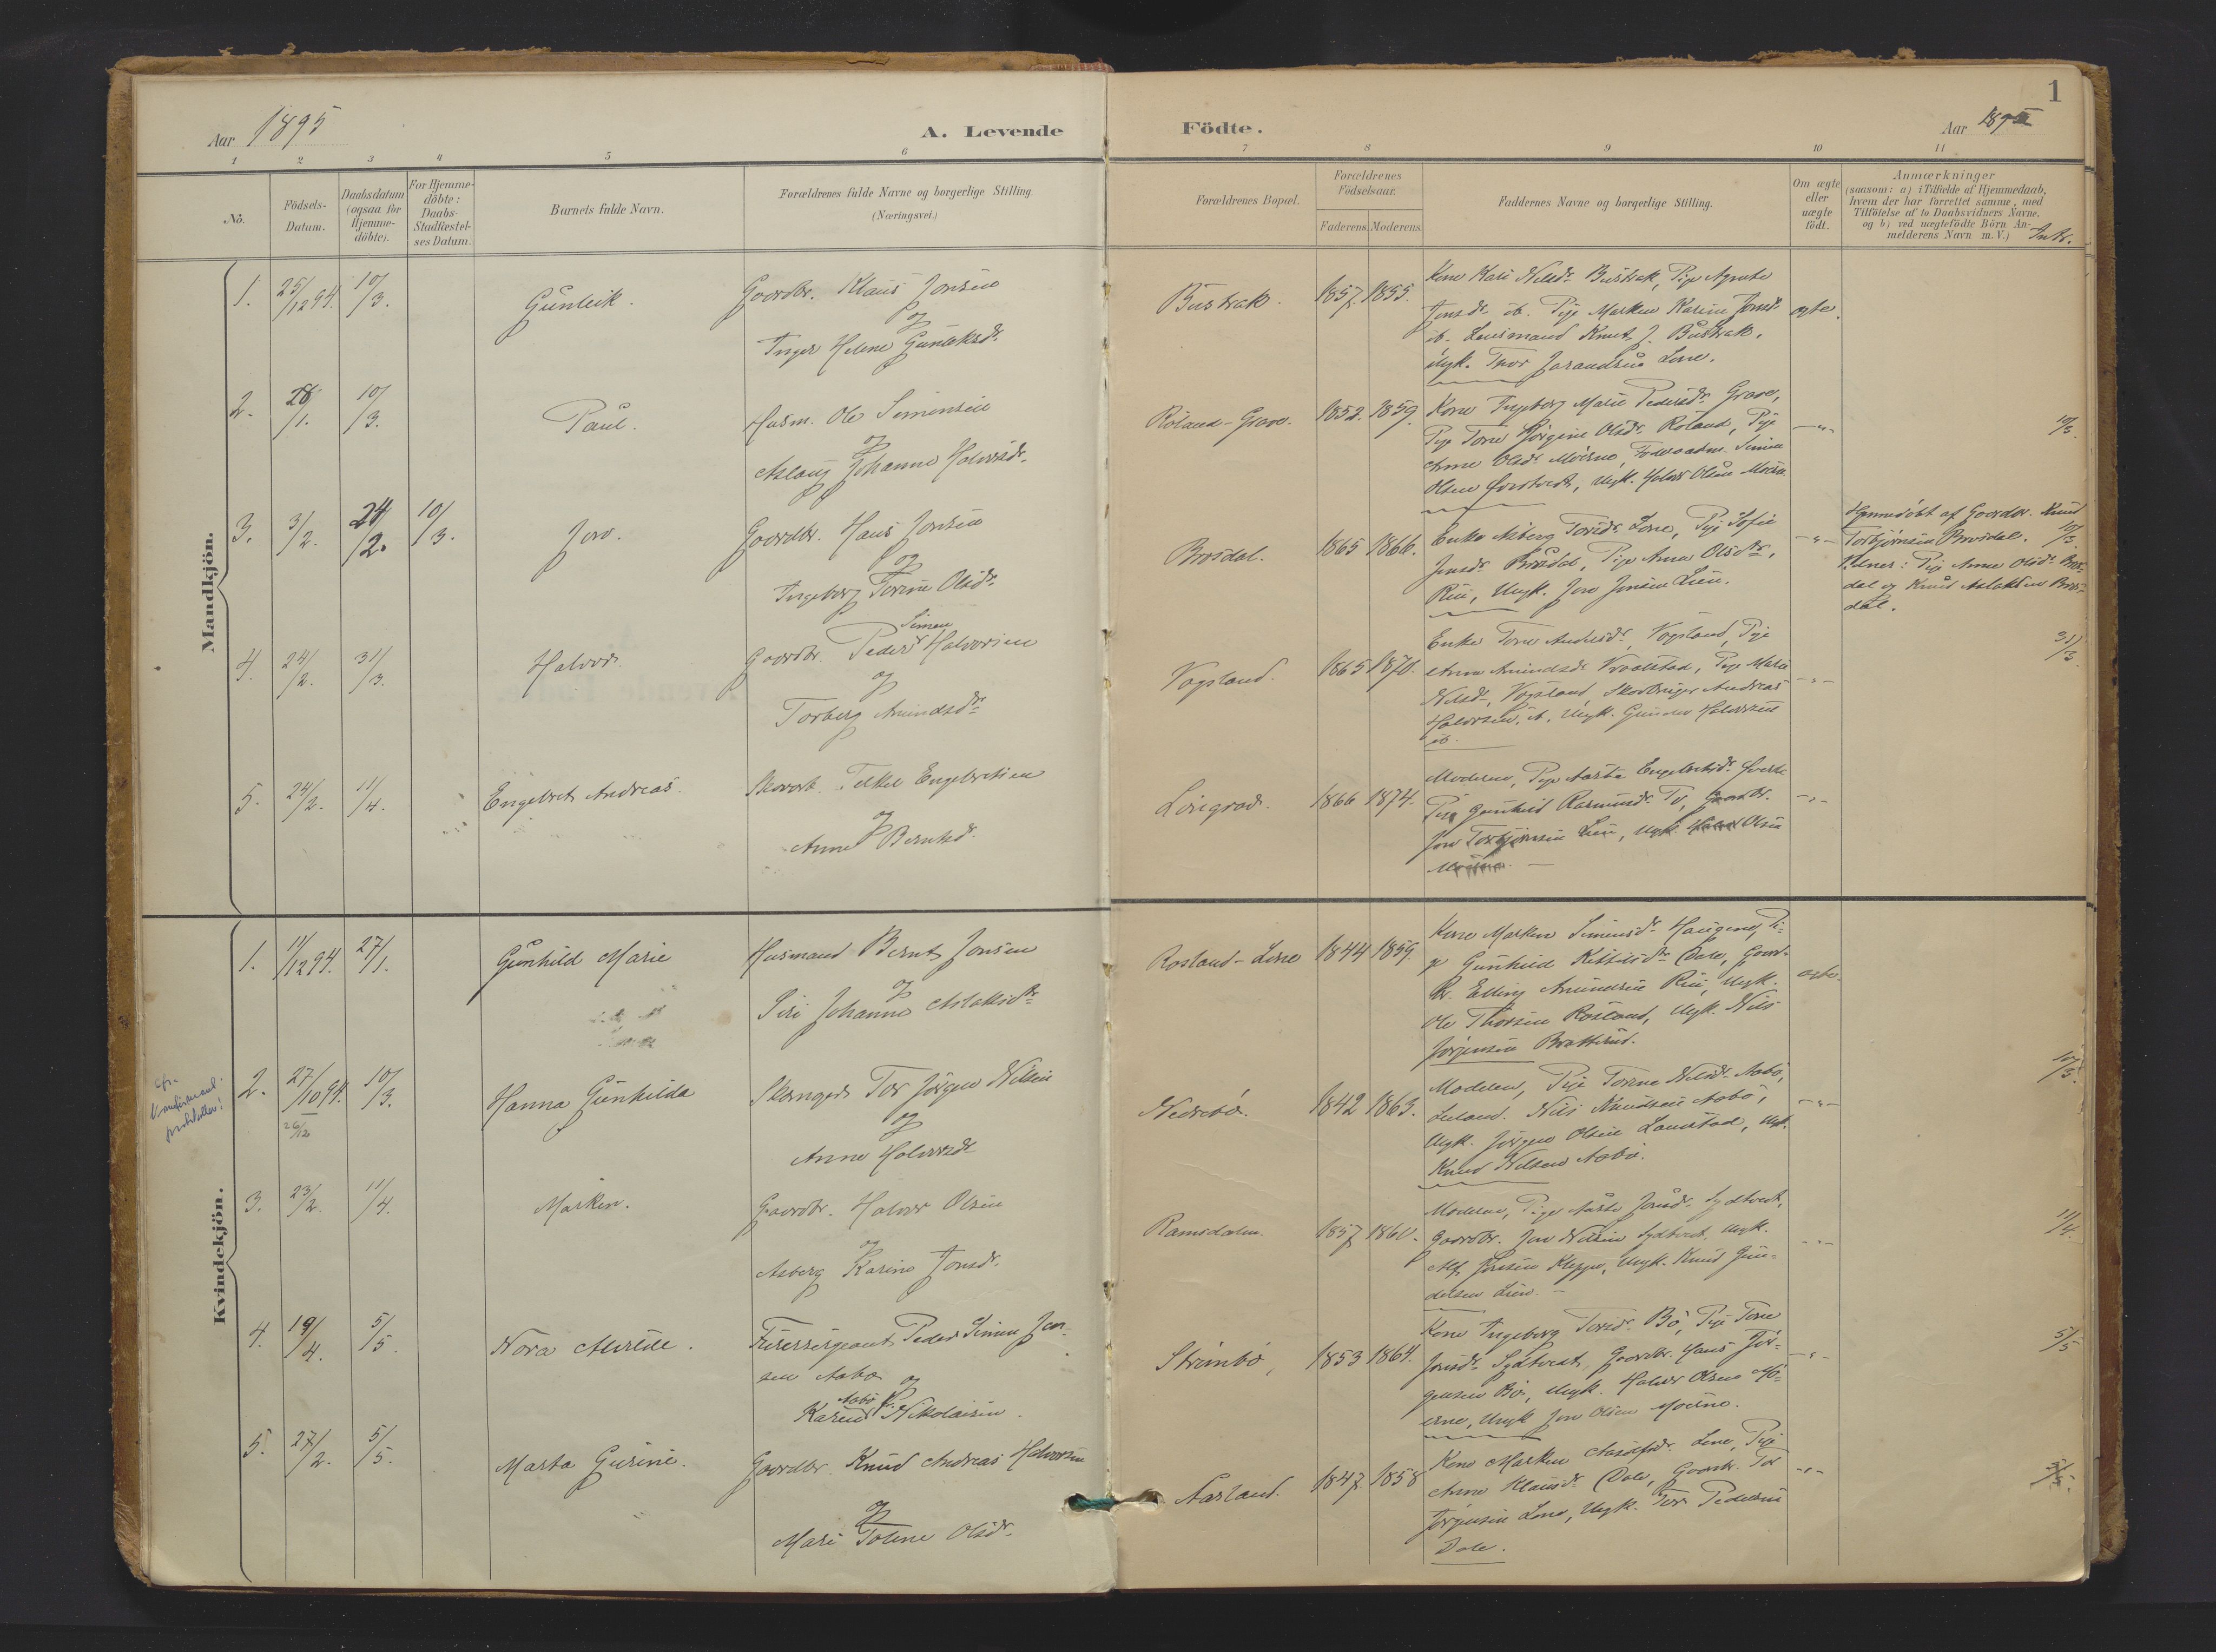 1
Aar 1895
A. Levende
Födte.
Aar 189
1 2 3 4 5 6 7 8 9 10 11
Nö.
Födsels-
Datum.
Daabsdatum
(ogsaa for
Hjemme-
döbte).
For Hjemme-
döbte:
Daabs-
Stadfæstel-
ses Datum.
Barnets fulde Navn.
Forældrenes fulde Navne og borgerlige Stilling.
(Næringsvei.)
Forældrenes Bopæl.
Forældrenes
Födselsaar.
Faderens. Moderens.
Faddernes Navne og borgerlige Stilling.
Om ægte
eller
uægte
födt.
Anmærkninger
(saasom: a) i Tilfælde af Hjemmedaab,
hvem der har forrettet samme, med
Tilföielse af to Daabsvidners Navne,
og b) ved uægtefödte Börn An-
melderens Navn m. V.)
Intr.
Mandkjön.
1. 25/12 94. 10/3. Gunleik.
Gaardbr. Klaus Jonsen
og
Inger Helene Gunleksdr.
Bustrak. 1857. 1855.
Kone Kari Nilsdr. Bustrak, Pige Agnete
Jonsdr. ib. Pige Marken Karine Jonsdr.
ib. Lensmand Knut J. Bustrak.
Ungk. Thor
ægte.
2. 28/1. 10/3. Paul.
Husm. Ole Simensen
og
Aslaug Johanne Halvorsdr.
Röland-Grave. 1852. 1859.
Kone Ingeborg Marie Pedersdr. Grave,
Pige Torne Jörgine Olsdr. Roland, Pige
Anne Olsdr. Moerne, Föderaadm. Simen
Olsen Ungk. Halvor Olsen Moerne
-"-
10/3.
3. 3/2. 24/2. 10/3. Jon.
Gaardbr. Hans Jonsen
og
Ingeborg Torine Olsdr.
Brosdal. 1865 1866.
Enke Asberg Torsdr. Lone, Pige Sofie
Jonsdr. Brosdal, Pige Anna Olsdtr.,
Rui, Ungk. Jon Jonsen Lien.
-"-
Hjemmedöbt af Gaardbr. Knud
Torbjörnsen Brosdal. 10/3.
Vidner: Pige Anne Olsdr. Bros-
dal og Knud Aslaksen Bros-
dal.
4. 24/2. 31/3. Halvor.
Simen
Gaardbr. Peder Halvorsen
og
Torberg Amundsdr.
Vogsland. 1865 1870.
Enke Torne Andersdr. Vogsland, Pige
Anne Amundsdr. Vraalstad, Pige Marie
Nilsdr., Vogsland, Skovbruger Andreas
Halvorsen, ib., Ungk. Gunder Halvorsen
ib.
-"-
31/3.
5. 24/2. 11/4. Engebret Andreas
Skovarb. Telkel Engebretsen
og
Anne Berntsd.
1866 1874.
Moderen, Pige Aaste Engebretsdr.
Pige Gunhild Rasmusdr.
Jon Torbjörnsen Lien, Ungk. Olsen
-"-
Kvindekjön.
1. 11/12 94. 27/1. Gunhild Marie
Husmand Bernt Jonsen
og
Siri Johanne Aslaksdr
Rosland-Lone 1844 1859.
Kone Marken Simensdr. Haugene, Pi-
ge Gunhild Kittilsdtr. Dale, Gaard-
br. Elling Amundsen Rui, Ungk.
Ole Thorsen Rosland, Ungk. Nils
Jörgensen Brattland.
ægte.
cfr.
2. 27/10 94. 10/3. Hanna Gunhilda
26/12
Tor Jörgen Nilsen
og
Anne Halvorsdr
Nedrebö. 1842 1863.
Moderen, Pige Torine Nilsdr. Aabö,
Nils Knudsen Aabö,
Ungk. Jörgen Olsen Ungk.
Knud Nilsen Aabö.
-"-
10/3.
3. 23/2. 11/4. Marken.
Gaardbr. Halvor Olsen
og
Asberg Karine Jonsdr.
Ramsdalen. 1857 1860.
Moderen, Pige Aaste Jonsdr. Sydtveit,
Gaardbr. Jon Nilsen Sydtveit, Ungk.
Alf Jonsen Kleppe, Ungk. Knud Gun-
dersen Lien.
-"-
11/4.
4. 19/4. 5/5. Nora
Peder Simen Jen-
sen Aabö og
Aabö f.
Karen Nikolaisen.
Strömbö, 1853 1864.
Kone Ingeborg Torsdr. Bö, Pige Tone
Jonsdr. Sydtveit, Gaardbr. Hans Jör-
gensen Bö, Ungk. Halvor Olsen Mo-
erne, Ungk Jon Olsen Moerne.
-"-
5/5
5. 27/2. 5/5. Marta Gurine.
Gaardbr. Knud Andreas Halvorsen
og
Mari Tolene Olsdr.
Aasland. 1847. 1858
Kone Marken Lone, Pige
Anne Klausdr. Dale, Gaardbr. Tor
Jörgensen Lone, Ungk. Tor Pedersen
Dale.
-"-
5/5.